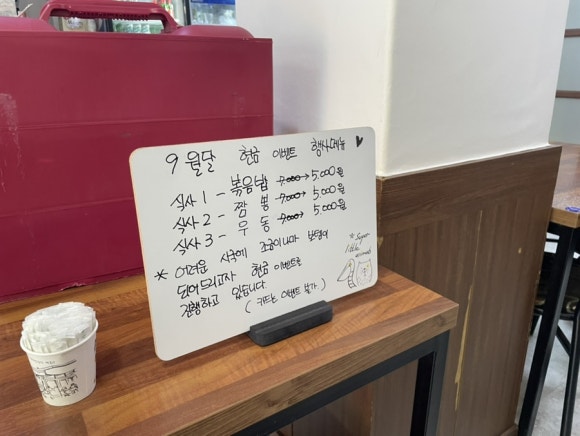 9월달 현금 이벤트 행사메뉴 ♥
식사 1 - 볶음밥 7000 → 5.000원
식사 2 - 짬 뽕 7000 → 5.000원
식사 3 - 우 동 7000 → 5.000원
* 어려운 시국에 조금이나마 보탬이
되어드리고자 현금 이벤트로
진행하고 있습니다
( 카드는 이벤트 불가 )
* Super
little